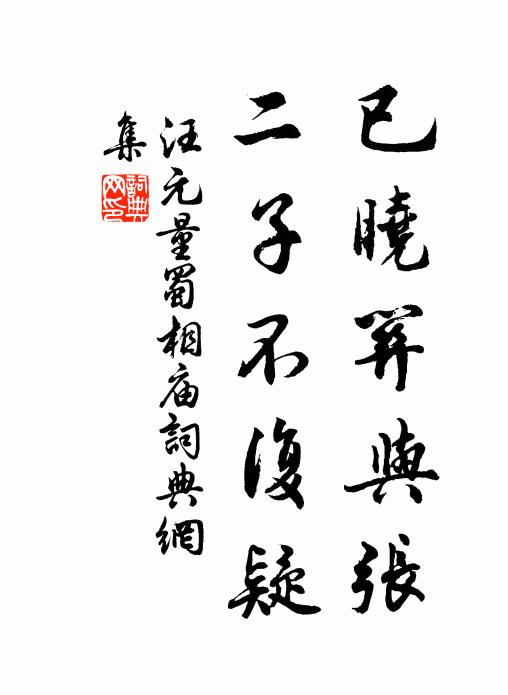 已曉羿與張
二子不復疑
汪元量蜀相庙詞典網
集
詞典
网印